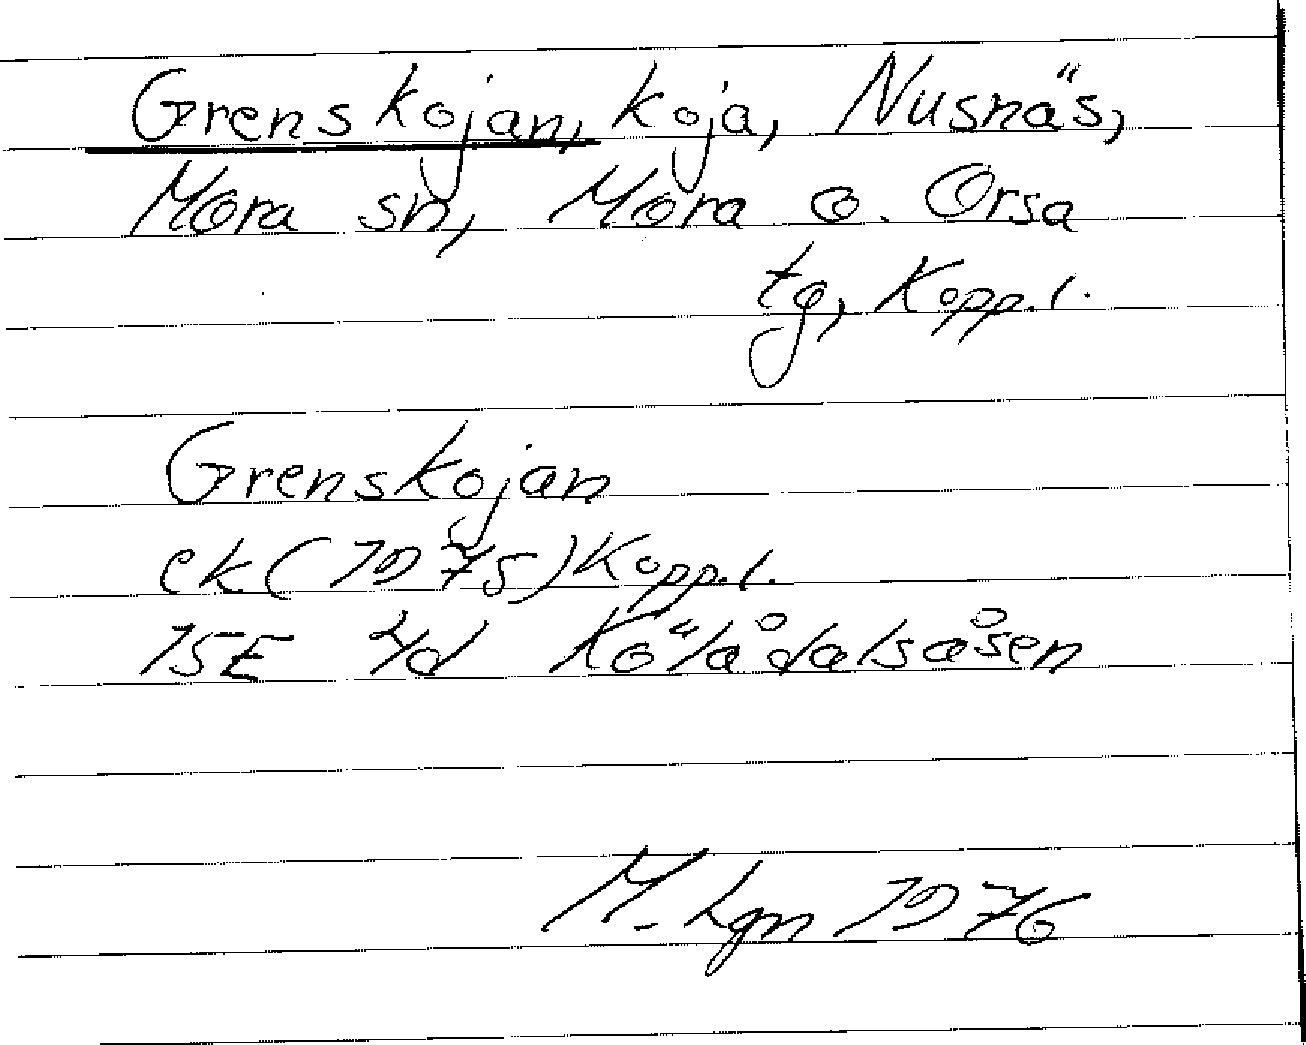 Grenskojan, koja, Nusnäs,
Mora sn, Mora o. Orsa
tg, Kopp.l.
Grenskojan
ek(1975)Kopp.l.
15E 4d Kölådalsåsen
M. Lgn 1976